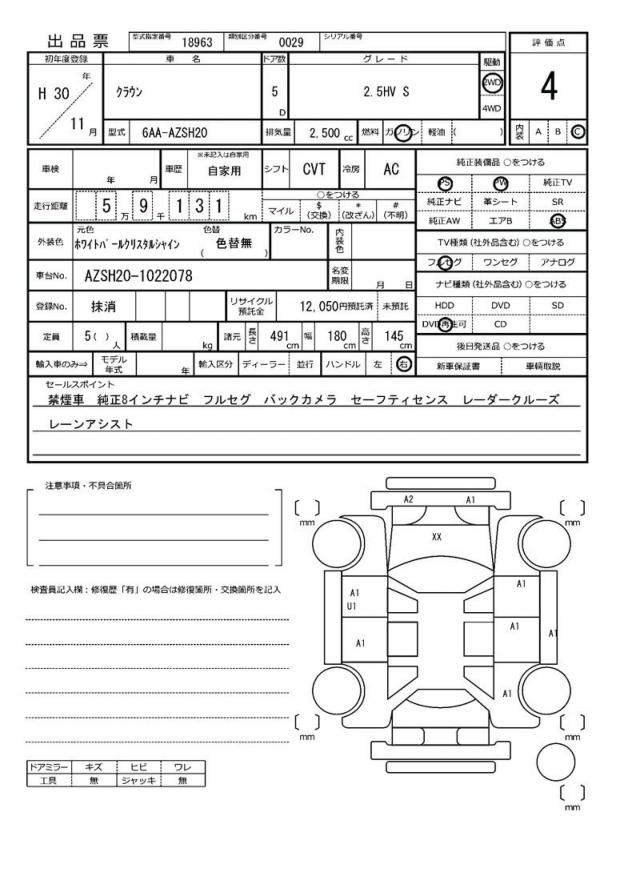 出品票 型式指定番号 18963 類別区分番号 0029 シリアル番号
評価点
4
内装 A B C
初年度登録 車名 ドア数 グレード 駆動
H 30 年 11 月 クラウン 5 D 2.5HV S 2WD 4WD
型式 6AA-AZSH20 排気量 2,500 cc 燃料 ガソリン 軽油 ( )
車検 年 月 車歴 ※未記入は自家用 自家用 シフト CVT 冷房 AC
走行距離 5 万 9 千 1 3 1 km ○をつける
マイル $ (交換) * (改ざん) # (不明)
外装色 元色 ホワイトパールクリスタルシャイン 色替 ( 色替無 ) カラーNo. 内装色
車台No. AZSH20-1022078 名変期限 月 日
登録No. 抹消 リサイクル預託金 12,050円預託済 未預託
定員 5( ) 人 積載量 kg 諸元 長さ 491 cm 幅 180 cm 高さ 145 cm
輸入車のみ⇒ モデル年式 年 輸入区分 ディーラー 並行 ハンドル 左 右
純正装備品 ○をつける
PS PW 純正TV
純正ナビ 革シート SR
純正AW エアB ABS
TV種類(社外品含む) ○をつける
フルセグ ワンセグ アナログ
ナビ種類(社外品含む) ○をつける
HDD DVD SD
DVD再生可 CD
後日発送品 ○をつける
新車保証書 車輌取説
セールスポイント
禁煙車 純正8インチナビ フルセグ バックカメラ セーフティセンス レーダークルーズ
レーンアシスト
注意事項・不具合箇所
検査員記入欄:修復歴「有」の場合は修復箇所・交換箇所を記入
ドアミラー キズ ヒビ ワレ
工具 無 ジャッキ 無
A2 A1
[ ] mm [ ] mm
XX
A1
U1
A1
A1
A1
A1
A1
[ ] mm [ ] mm
[ ] mm